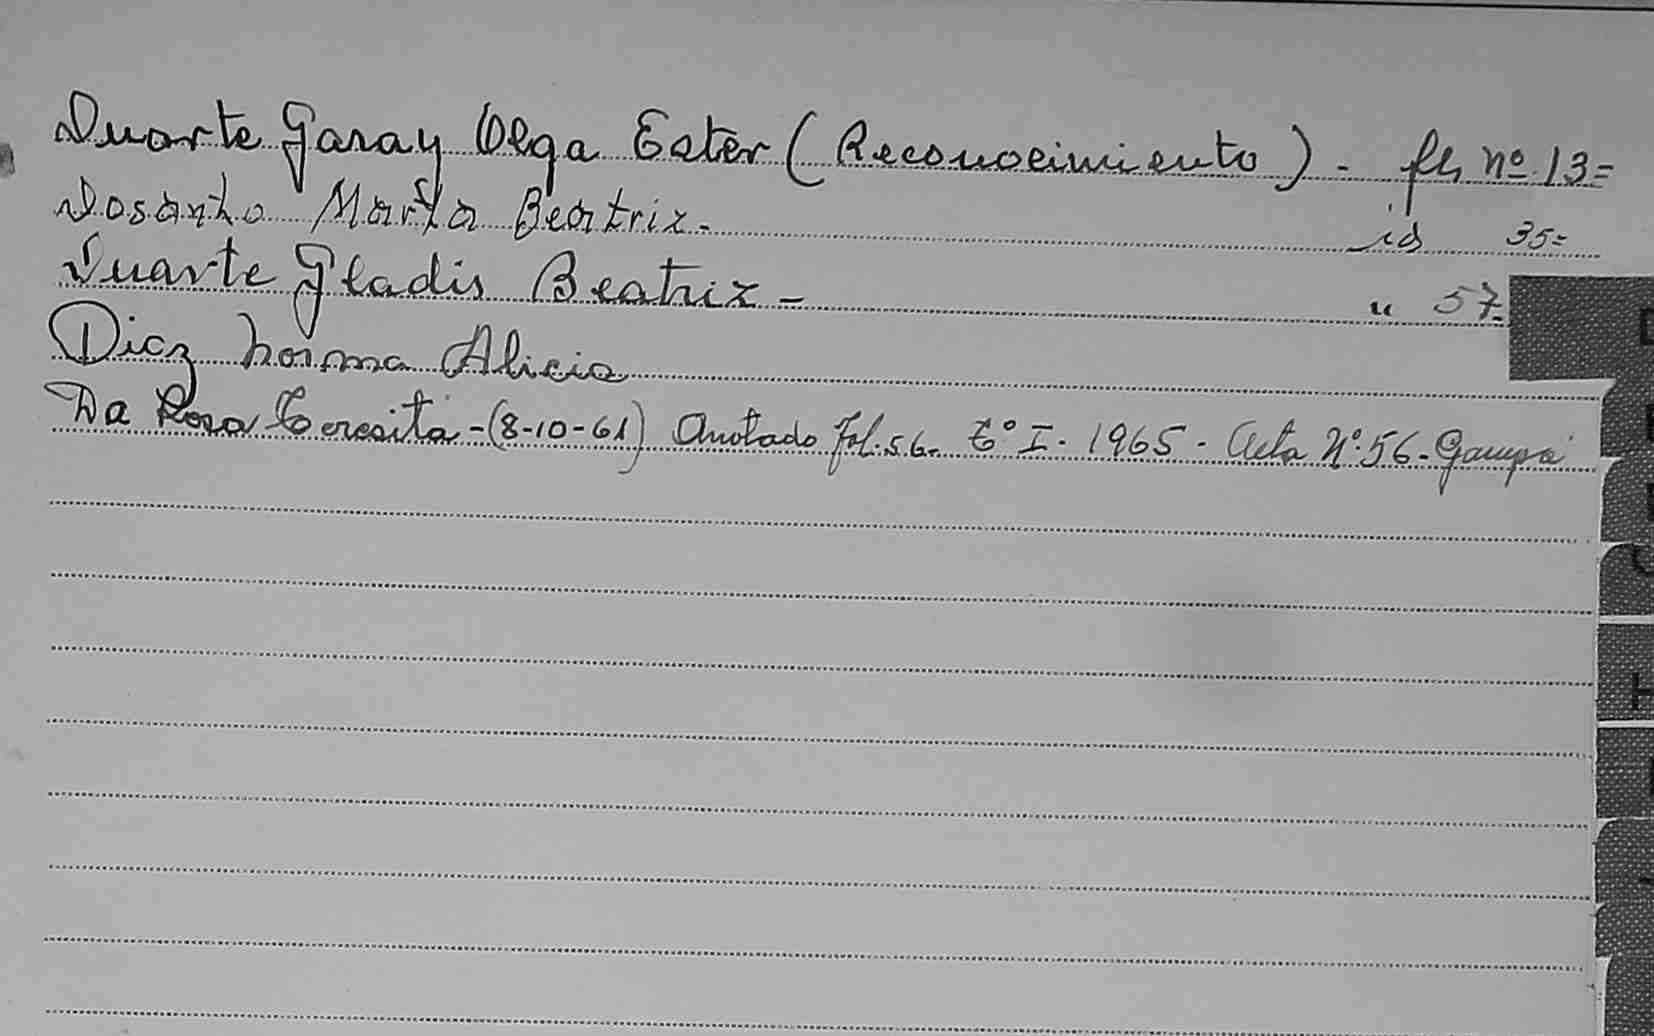 Duarte Garay Olga Ester (Reconocimiento). - fls nº 13=
Dosanto Marta Beatriz. id 35=
Duarte Gladis Beatriz - " 57=
Diaz Norma Alicia
Da Rosa Teresita - (8-10-61) Anotado fol. 56. Tº I. 1965. Acta Nº 56.
H